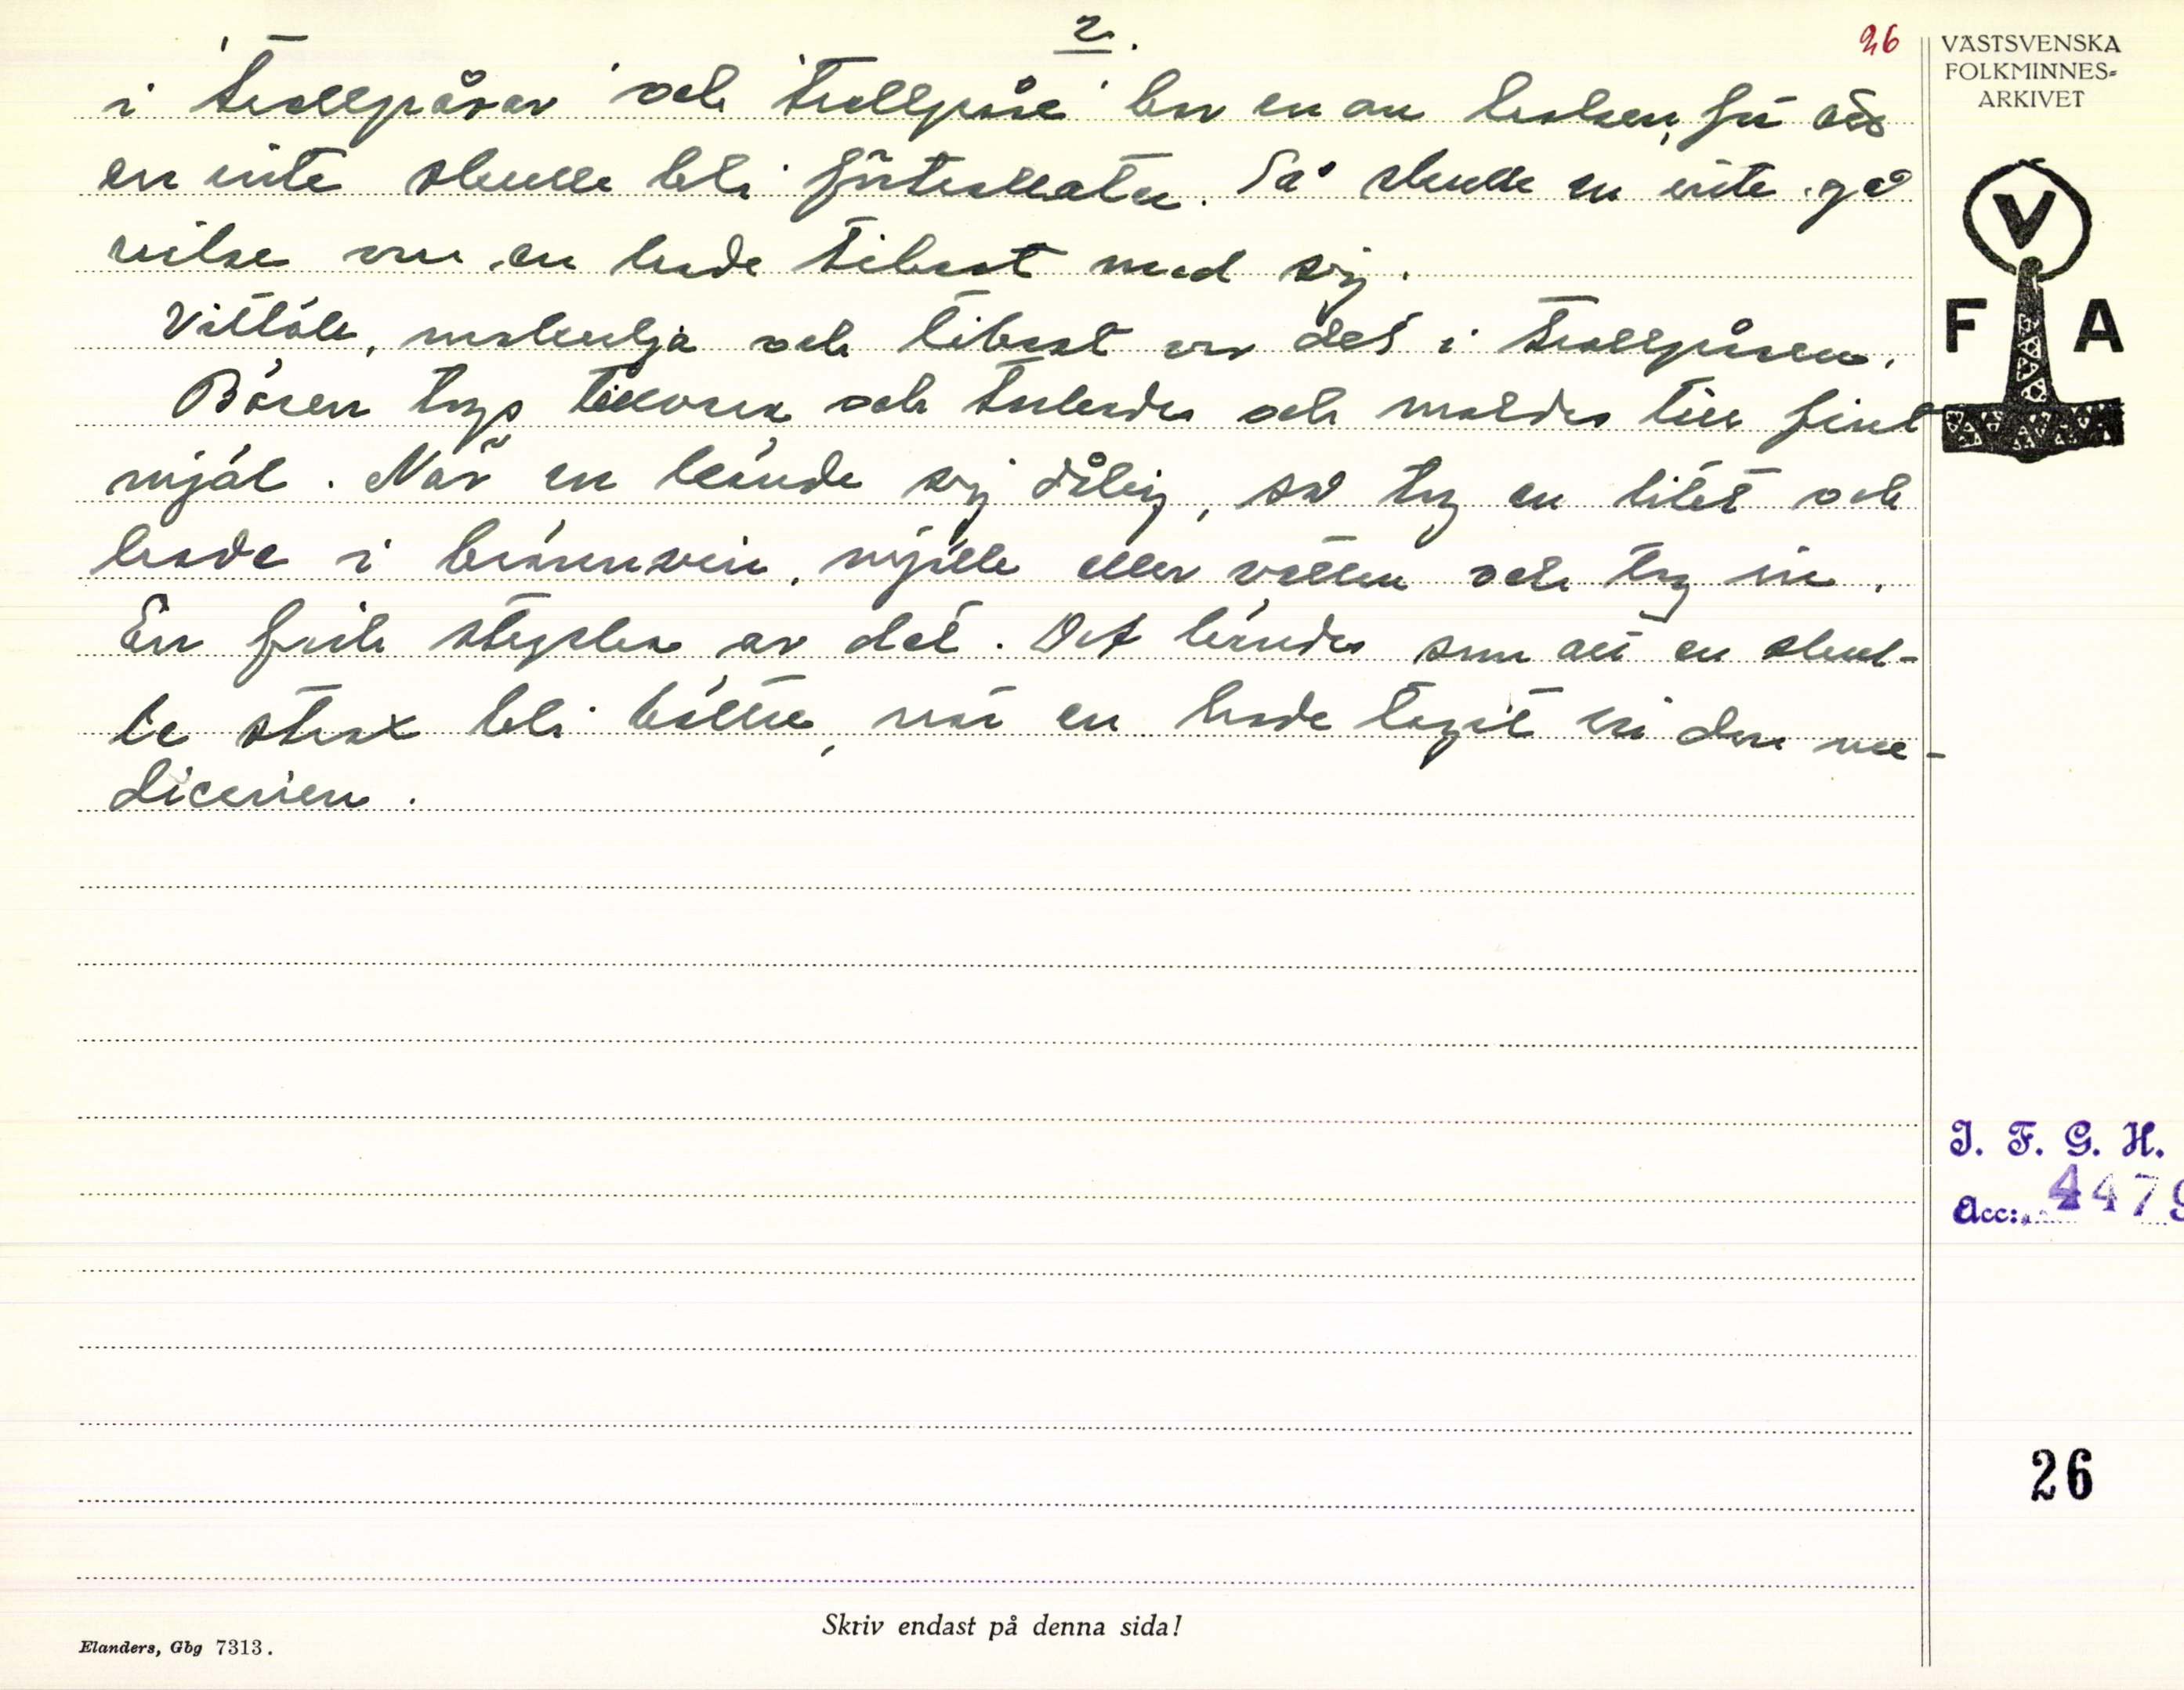 2.
26
VÄSTSVENSKA
FOLKMINNES-
ARKIVET
i 'trollpåsar' och 'trollpåse' bar en om halsen, för att
en inte skulle bli förtrollater. Så skulle en inte gå
vilse om en hade tibast med sig.
Vitlök, mokulja och tibast var det i trollpåsen.
Bären togs tillvara och torkades och maldes till fint
mjöl. När en kände sig dålig, så tog en litet och
hade i brännvin, mjölk eller vatten och tog in.
En fick styrka av det. Det kändes som att en skul-
le strax bli bättre, när en hade tagit in den me-
dicinen.
V
F A
I. F. G. H.
Acc: 4479
26
Skriv endast på denna sida!
Elanders, Gbg 7313.